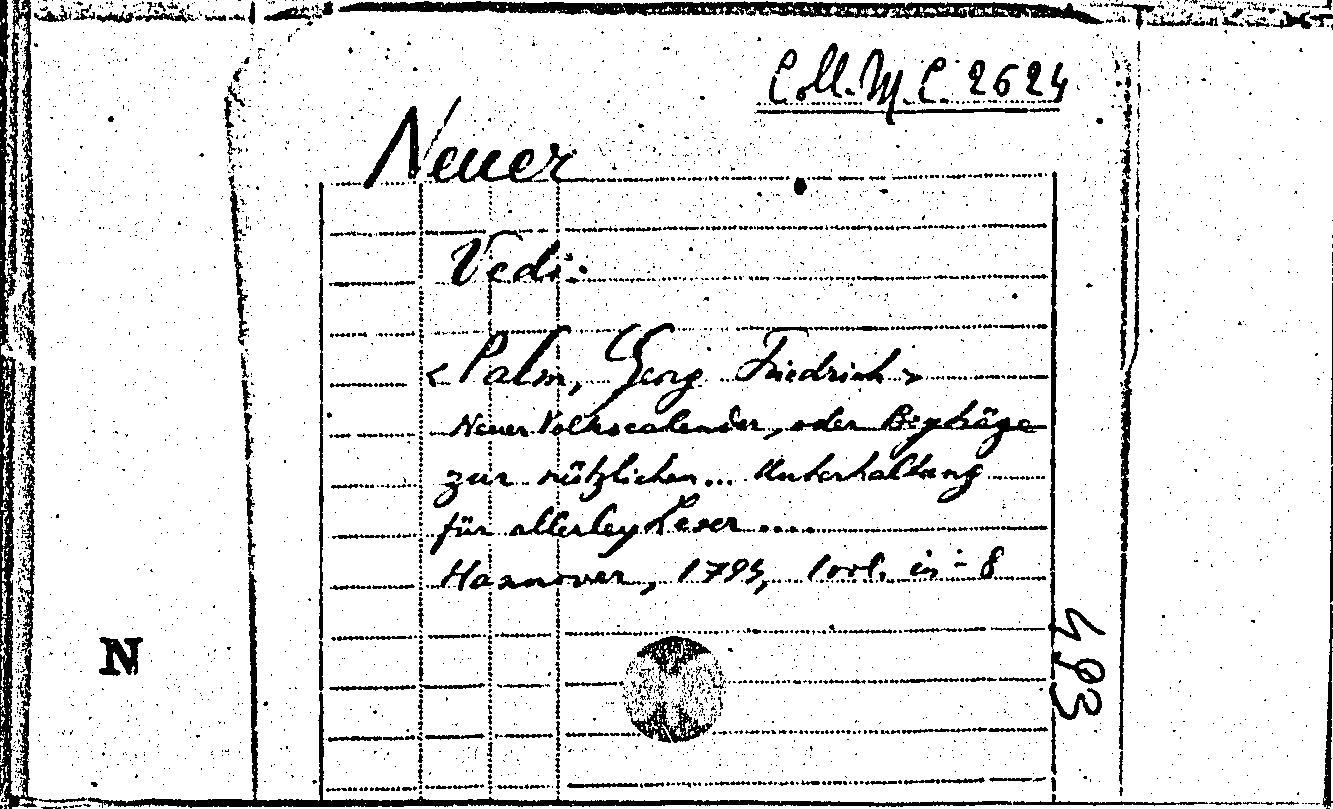 Coll. M. C. 2624
Neuer
Vedi:
<Palm, Georg Friedrich>
Neuer Volkscalender, oder Beyträge
zur nützlichen... Unterhaltung
für allerley Leser ....
Hannover, 1794, 1 vol. in-8
N
493